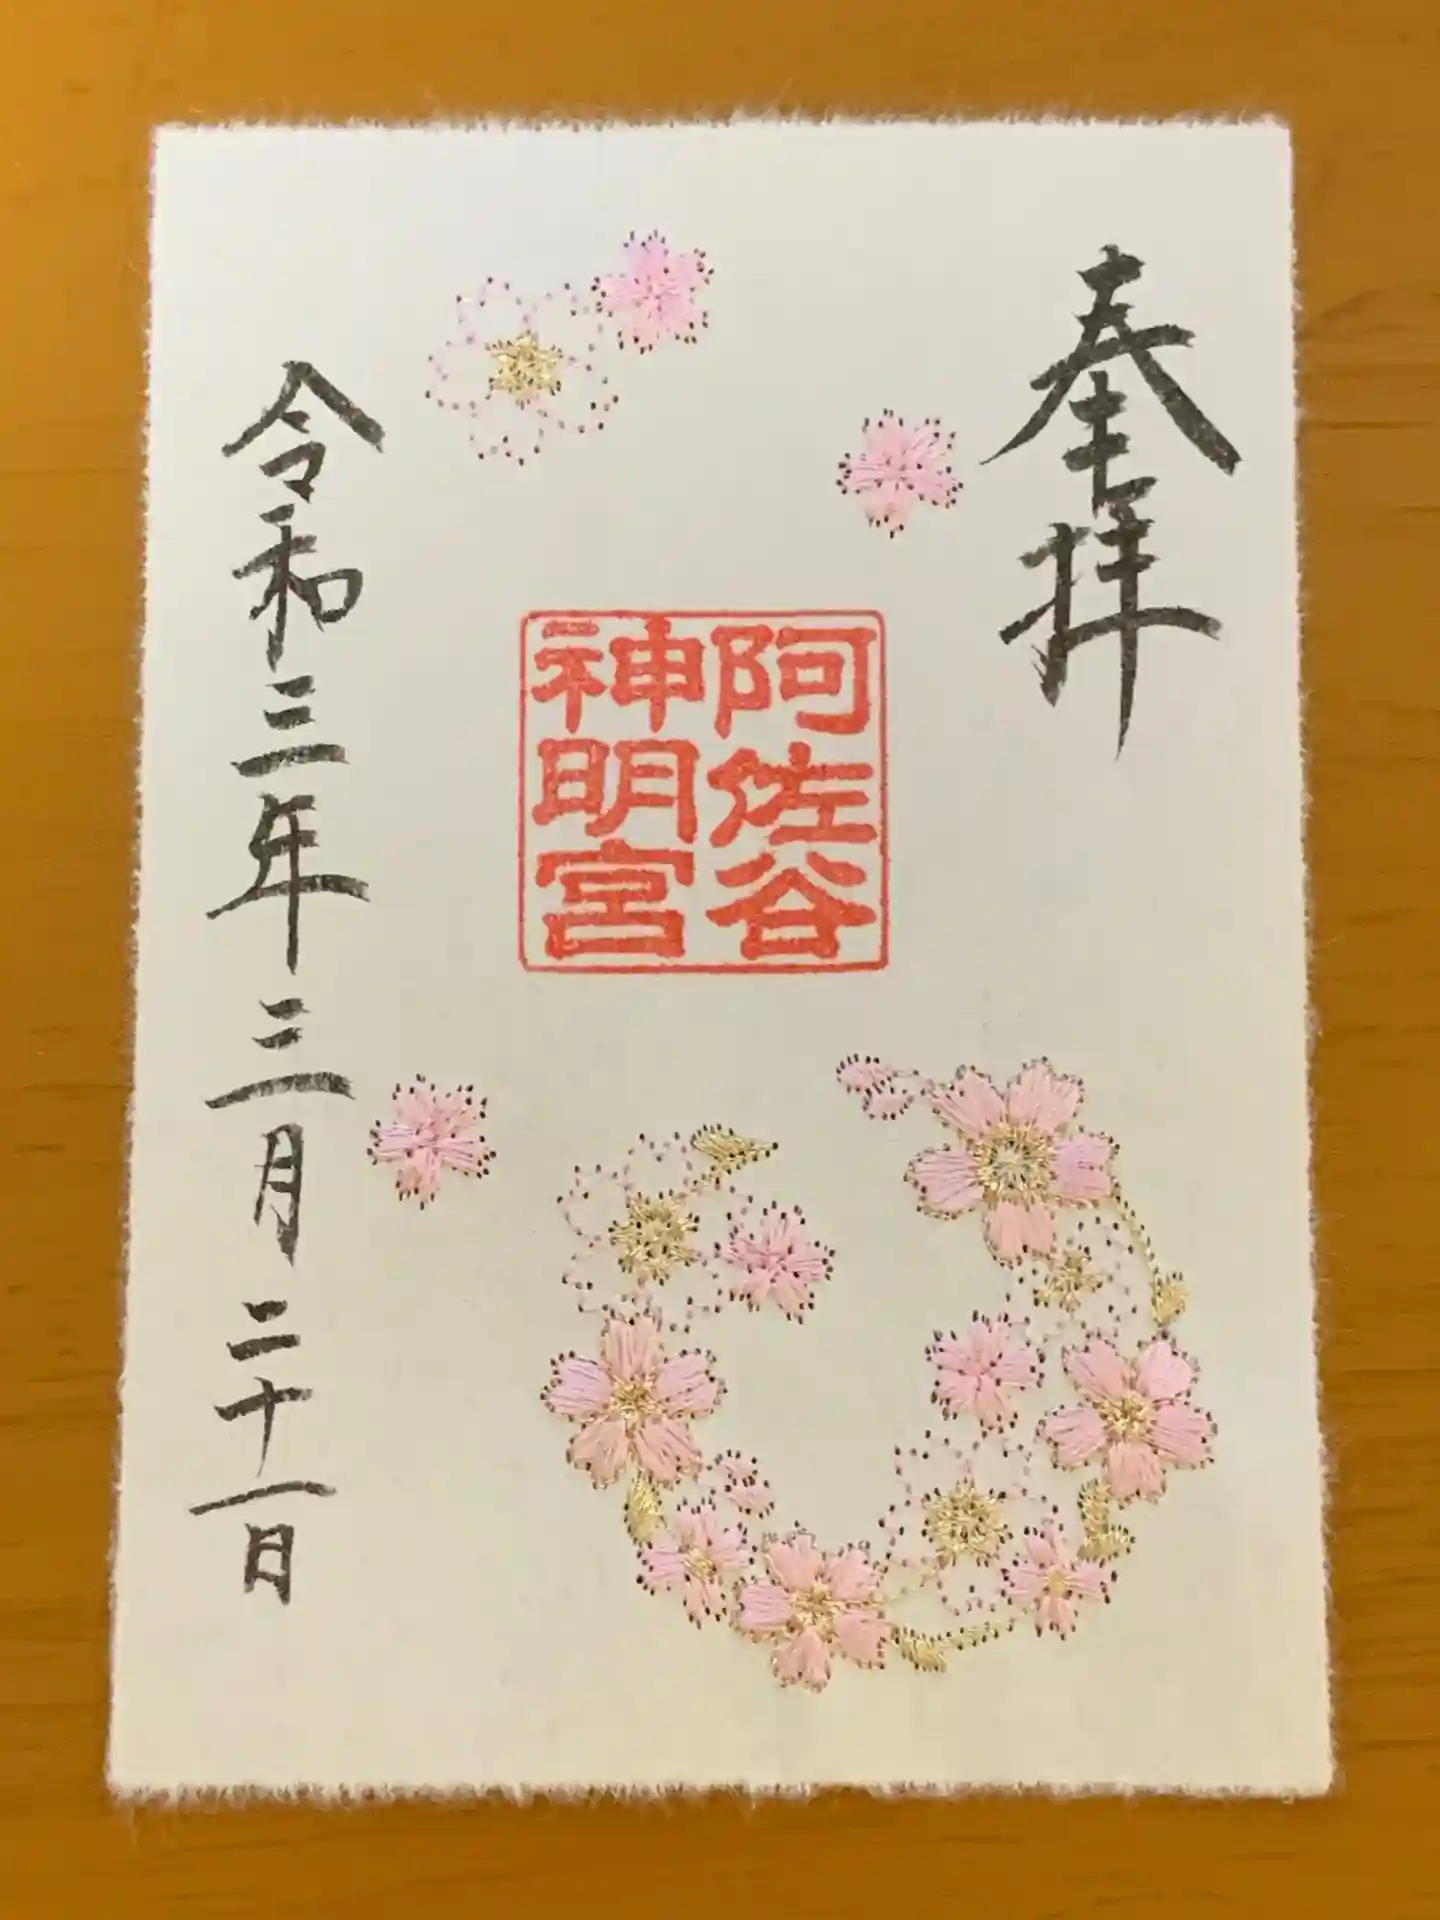 奉拝
阿佐谷
神明宮
令和三年三月二十一日